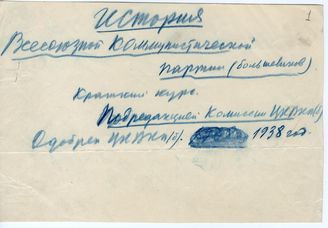 1
История
Всесоюзной Коммунистической
партии (большевиков).
Краткий курс.
Под редакцией Комиссии ЦКВКП(б)
Одобрен ЦКВКП(б). 1938 год.